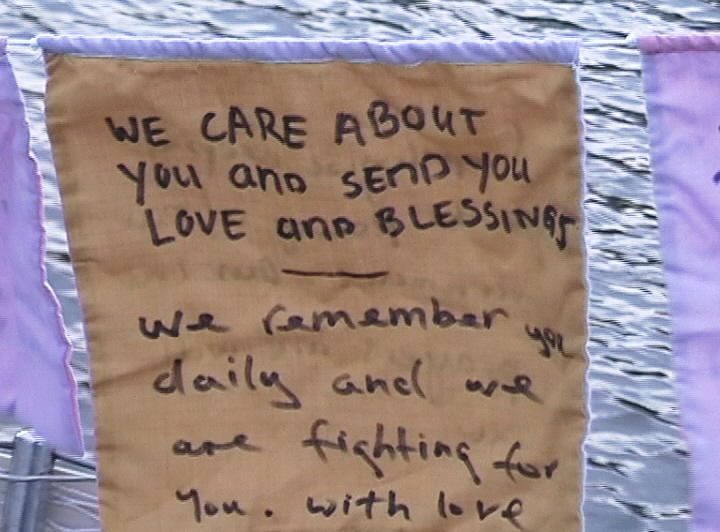 WE CARE ABOUT
YOU and SEND YOU
LOVE and BLESSINGS
we remember you
daily and we
are fighting for
you. with love